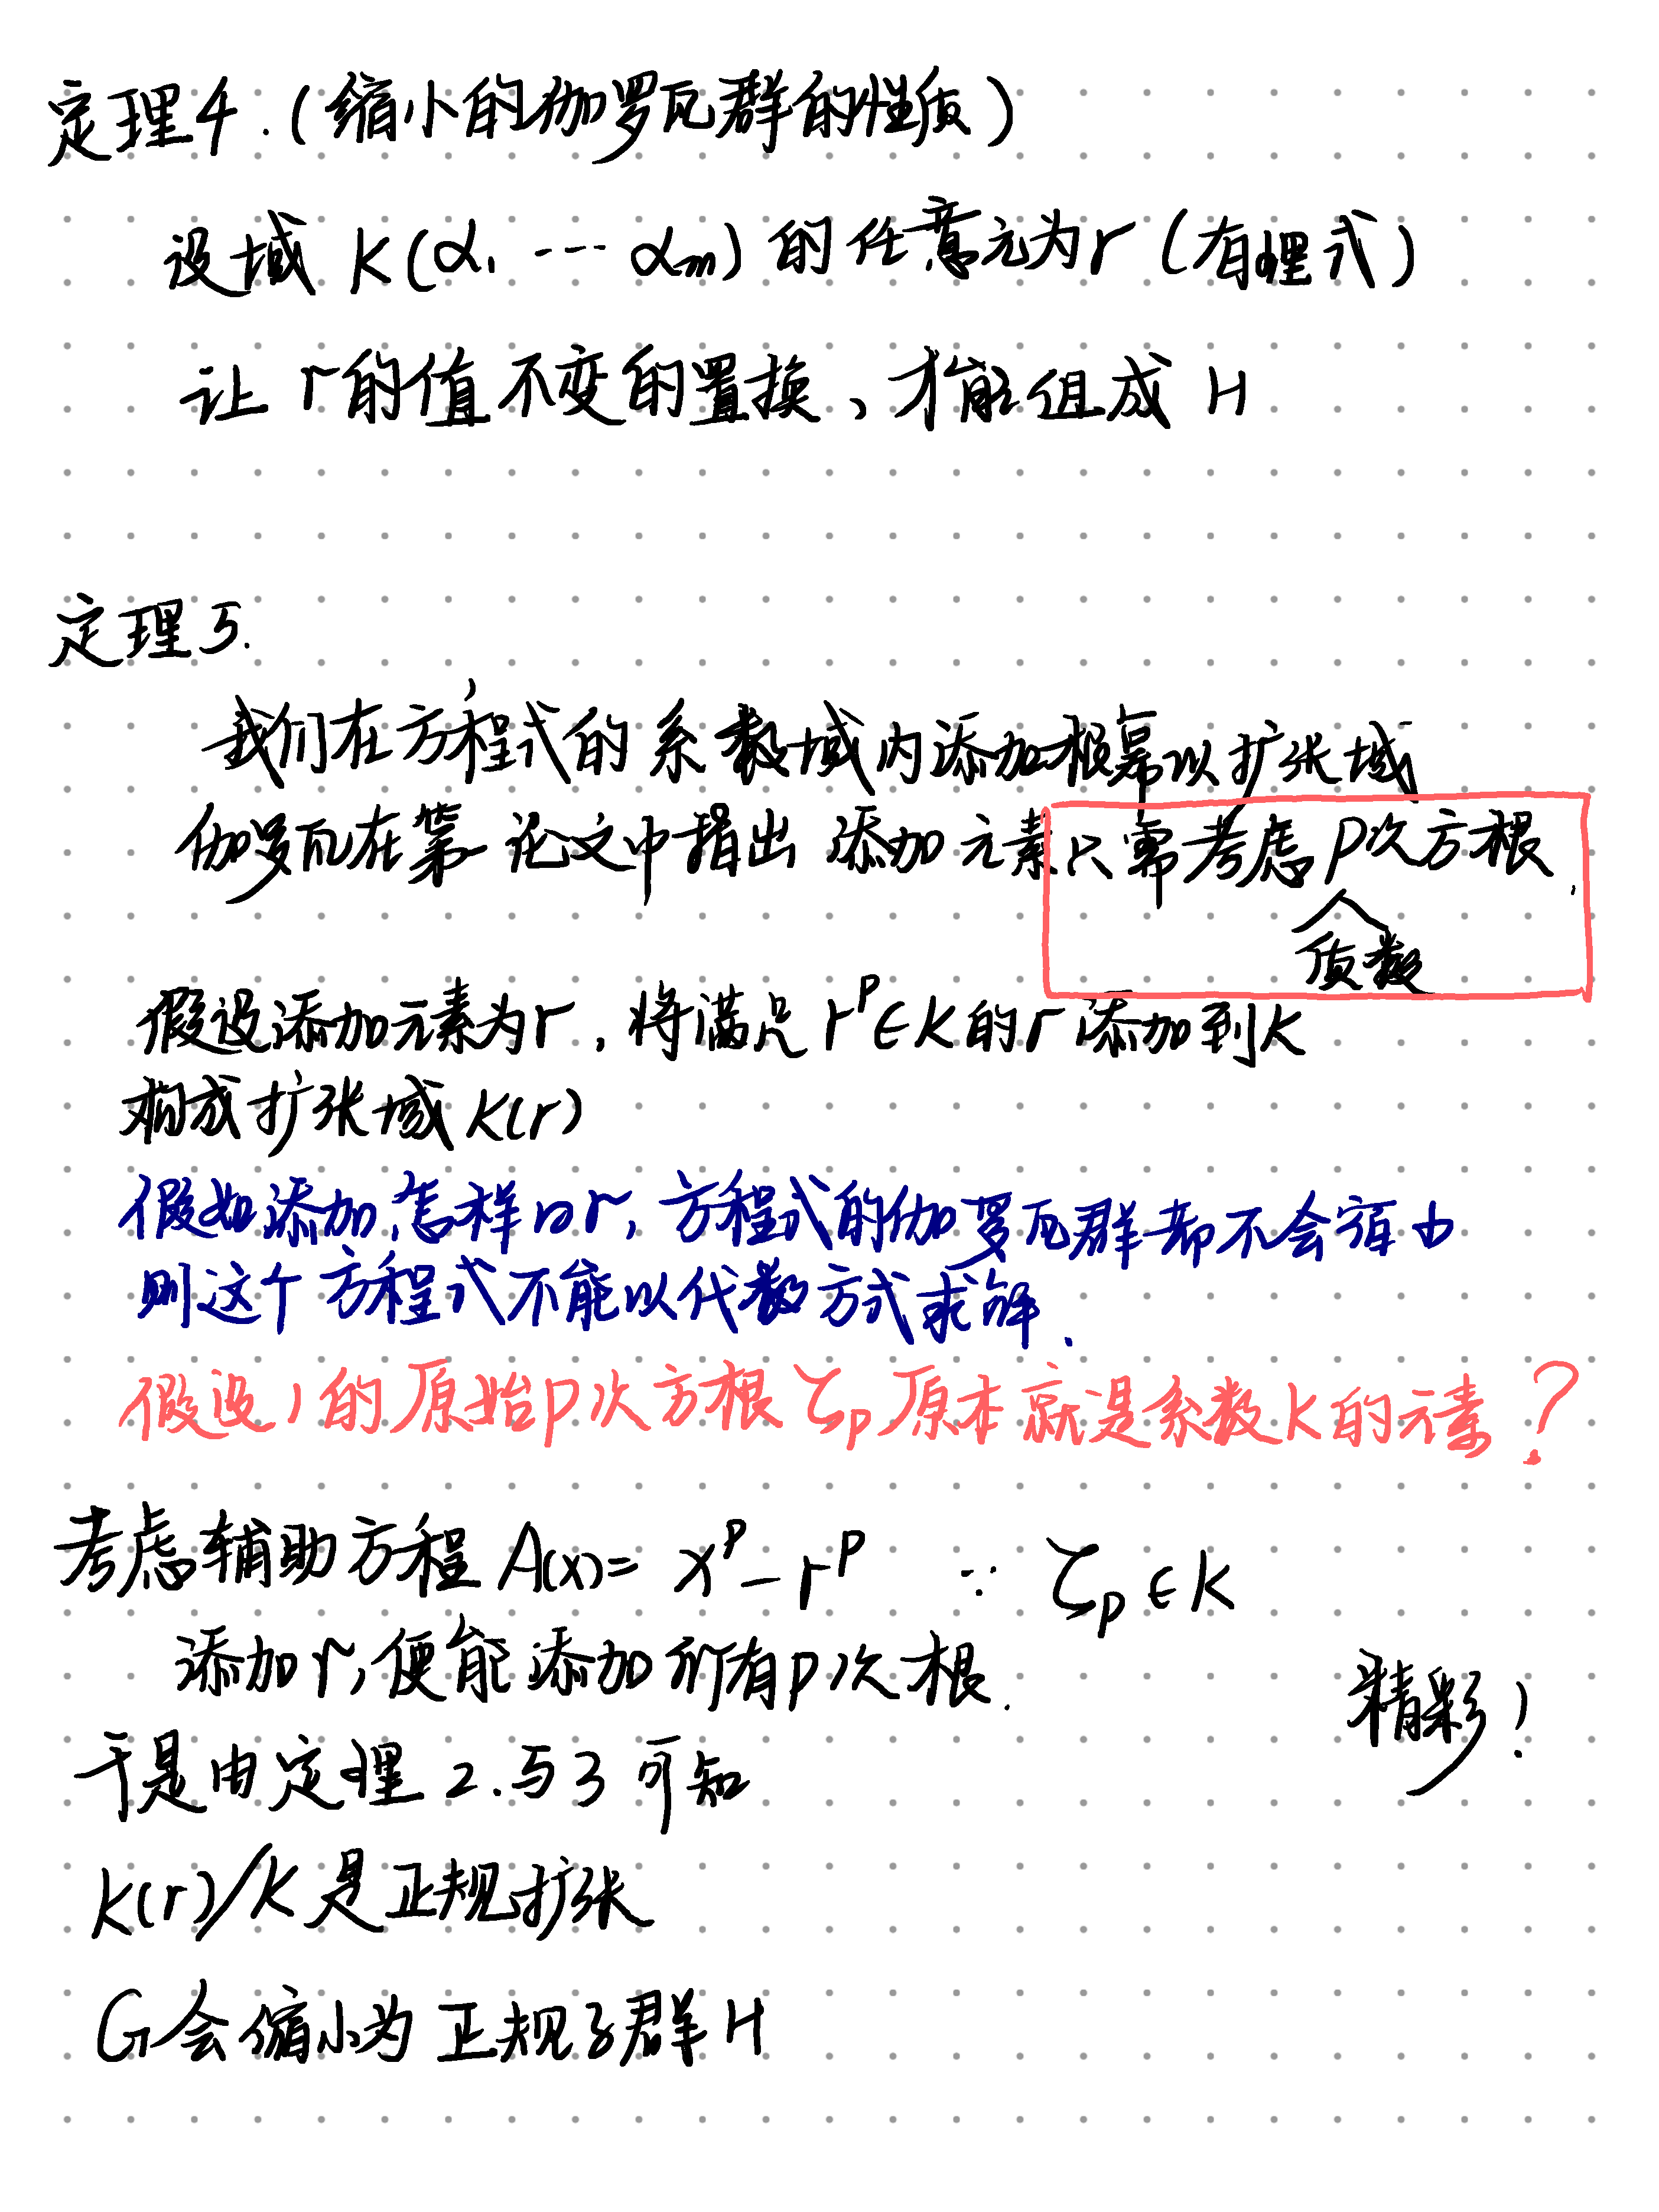 定理4.(缩小的伽罗瓦群的性质)
设域 K(α₁ ··· αm) 的任意元为r (有理式)
让 r的值不变的置换、才能组成 H
定理5.
我们在方程式的系数域内添加根幂以扩张域
伽罗瓦在第一论文中指出 添加元素只需考虑 p次方根.
质数
假设添加元素为r,将满足 r^p∈K的r添加到K
构成扩张域K(r)
假如添加怎样的r,方程式的伽罗瓦群都不会缩小
则这个方程式不能以代数方式求解.
假设1的原始p次方根 ζp 原本就是系数K的元素?
考虑辅助方程 A(x)= x^p - r^p ∵ ζp∈K
添加r,便能添加所有p次根.
精彩!
于是由定理 2.与3可知
K(r)/K 是正规扩张
G会缩小为正规子群H